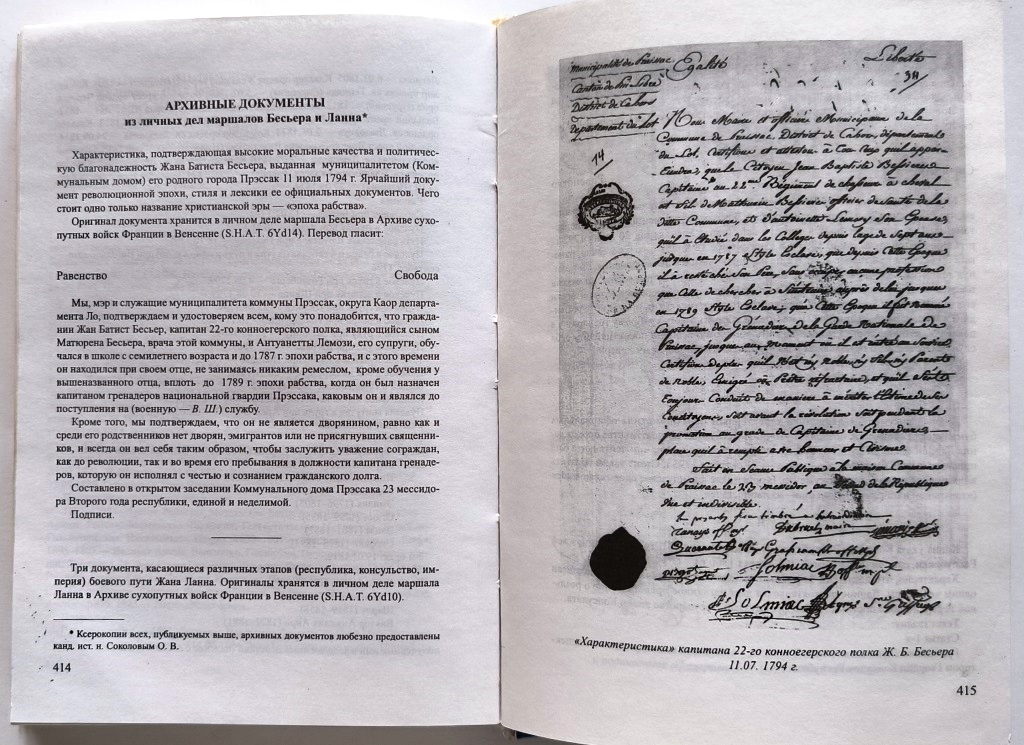 АРХИВНЫЕ ДОКУМЕНТЫ
из личных дел маршалов Бесьера и Ланна*
Характеристика, подтверждающая высокие моральные качества и политичес-
кую благонадежность Жана Батиста Бесьера, выданная муниципалитетом (Ком-
мунальным домом) его родного города Прэссак 11 июля 1794 г. Ярчайший доку-
мент революционной эпохи, стиля и лексики ее официальных документов. Чего
стоит одно только название христианской эры — «эпоха рабства».
Оригинал документа хранится в личном деле маршала Бесьера в Архиве сухо-
путных войск Франции в Венсенне (S.H.A.T. 6Yd14). Перевод гласит:
Равенство Свобода
Мы, мэр и служащие муниципалитета коммуны Прэссак, округа Каор департа-
мента Ло, подтверждаем и удостоверяем всем, кому это понадобится, что гражда-
нин Жан Батист Бесьер, капитан 22-го конноегерского полка, являющийся сыном
Матюрена Бесьера, врача этой коммуны, и Антуанетты Лемози, его супруги, обу-
чался в школе с семилетнего возраста и до 1787 г. эпохи рабства, и с этого времени
он находился при своем отце, не занимаясь никаким ремеслом, кроме обучения у
вышеназванного отца, вплоть до 1789 г. эпохи рабства, когда он был назначен
капитаном гренадеров национальной гвардии Прэссака, каковым он и являлся до
поступления на (военную — В. Ш.) службу.
Кроме того, мы подтверждаем, что он не является дворянином, равно как и
среди его родственников нет дворян, эмигрантов или не присягнувших священни-
ков, и всегда он вел себя таким образом, чтобы заслужить уважение сограждан,
как до революции, так и во время его пребывания в должности капитана гренаде-
ров, которую он исполнял с честью и сознанием гражданского долга.
Составлено в открытом заседании Коммунального дома Прэссака 23 мессидо-
ра Второго года республики, единой и неделимой.
Подписи.
Три документа, касающиеся различных этапов (республика, консульство, им-
перия) боевого пути Жана Ланна. Оригиналы хранятся в личном деле маршала
Ланна в Архиве сухопутных войск Франции в Венсенне (S.H.A.T. 6Yd10).
* Ксерокопии всех, публикуемых выше, архивных документов любезно предоставлены
канд. ист. н. Соколовым О. В.
414
Municipalité de Prissac Egalité Liberté
Canton de Prix Libre 34
District de Cahors
Département du Lot
14
Nous Maire et officiers Municipaux de la
Commune de District de Cahors, département
du Lot, Certifions et attestons a Tous ceux qu'il appar-
tiendra, que le Citoyen Jean Baptiste Bessieres
Capitaine au 22me Régiment de chasseurs a cheval
est fils de Mathurin Bessieres officier de Santé de la
ditte Commune, et d'antoinette Lemozy Son Epouse,
qu'il a Etudié dans les Colleges depuis l'age de Sept ans
jusque en 1787 Style Esclave, que depuis Cette Epoque
il a resté chez Son Pere, Sans aucune profession
que Celle de jusque
en 1789 Style Esclave, que Cette Epoque il fut nommé
Capitaine des Grenadiers de la Garde Nationale de
jusque au moment où il est entré au Service
Certifions de plus qu'il N'est ni Noble, ni fils, ni Parent
de Noble, Emigré ou Pretre refractaire, et qu'il s'est
Toujours Conduit de maniere à mériter l'Estime de Ses
Concitoyens, Soit avant la révolution Soit pendant la
promotion au grade de Capitaine de Grenadiers,
place qu'il a remplie avec honneur et Civisme
fait en Seance Publique a la maison Commune
de le 23 messidor, an Second de la République
Une et indivisible.
Solmiac
Solmiac
«Характеристика» капитана 22-го конноегерского полка Ж. Б. Бесьера
11.07. 1794 г.
415